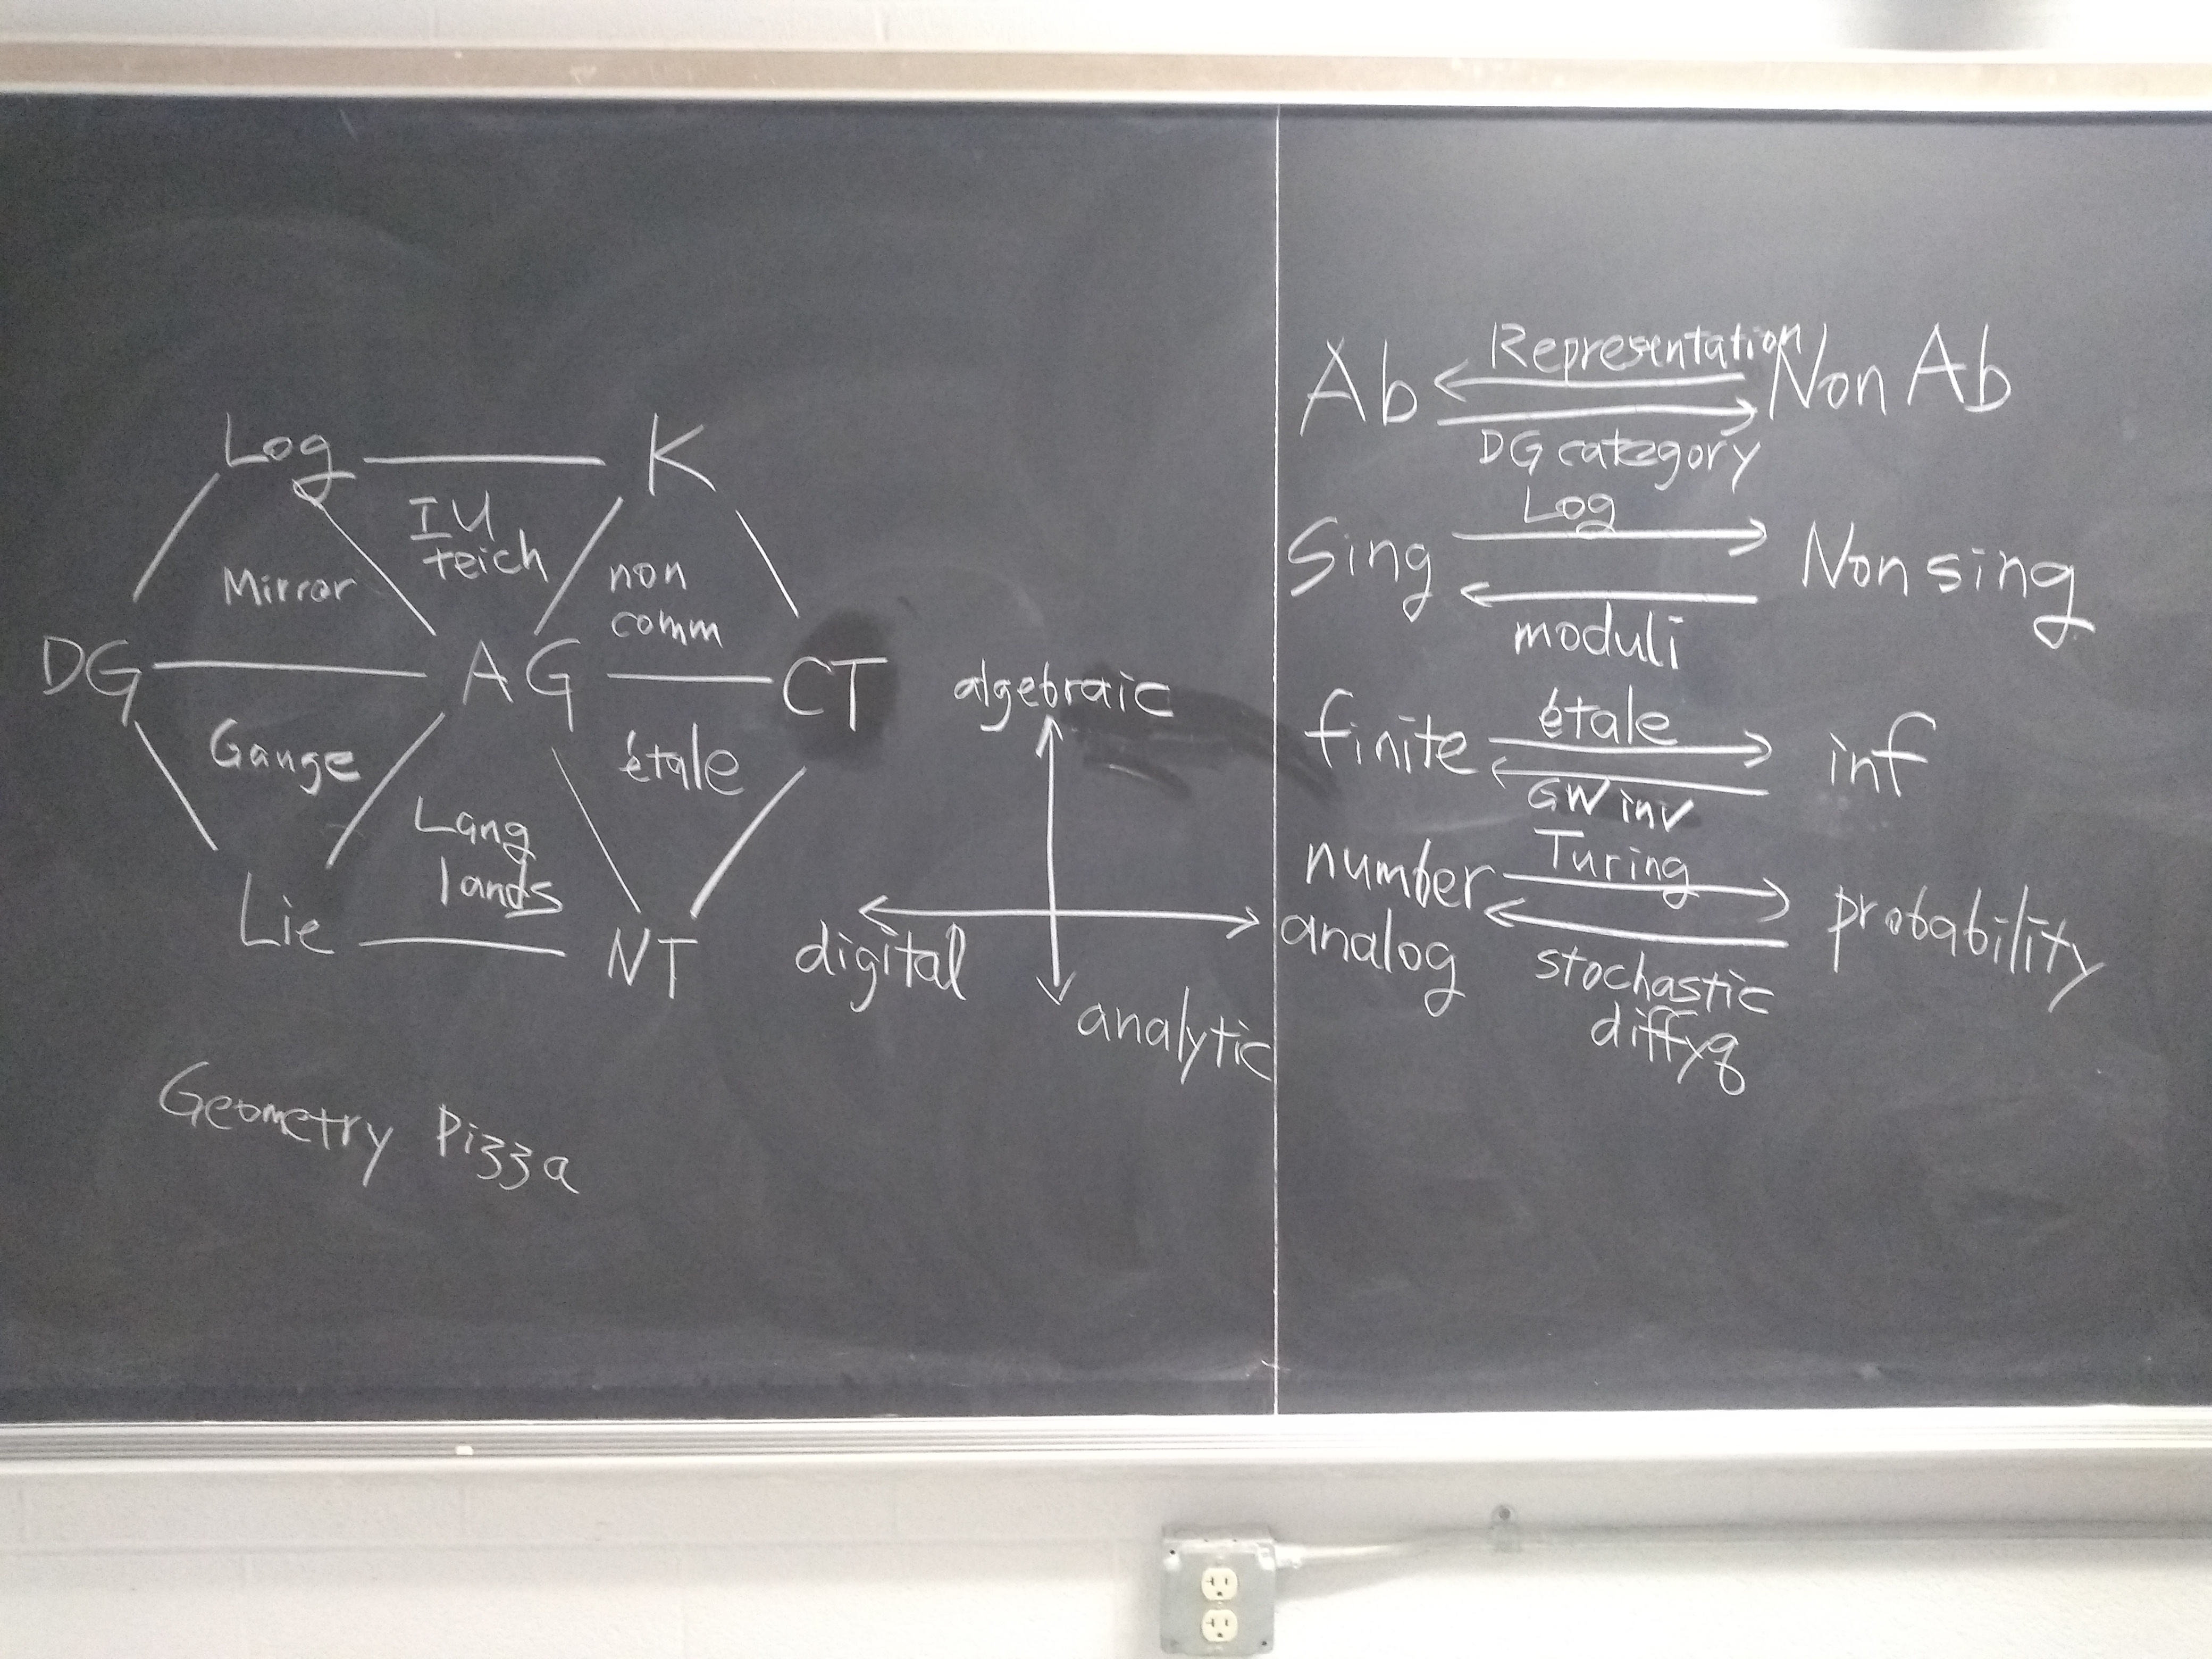 Log K
IU
teich
Mirror
non
comm
DG AG CT
Gauge
étale
Lang
lands
Lie NT
Geometry Pizza
algebraic
digital
analog
analytic
Representation
Ab Non Ab
DG category
Log
Sing Non sing
moduli
étale
finite inf
GW inv
Turing
number probability
stochastic
diffyq